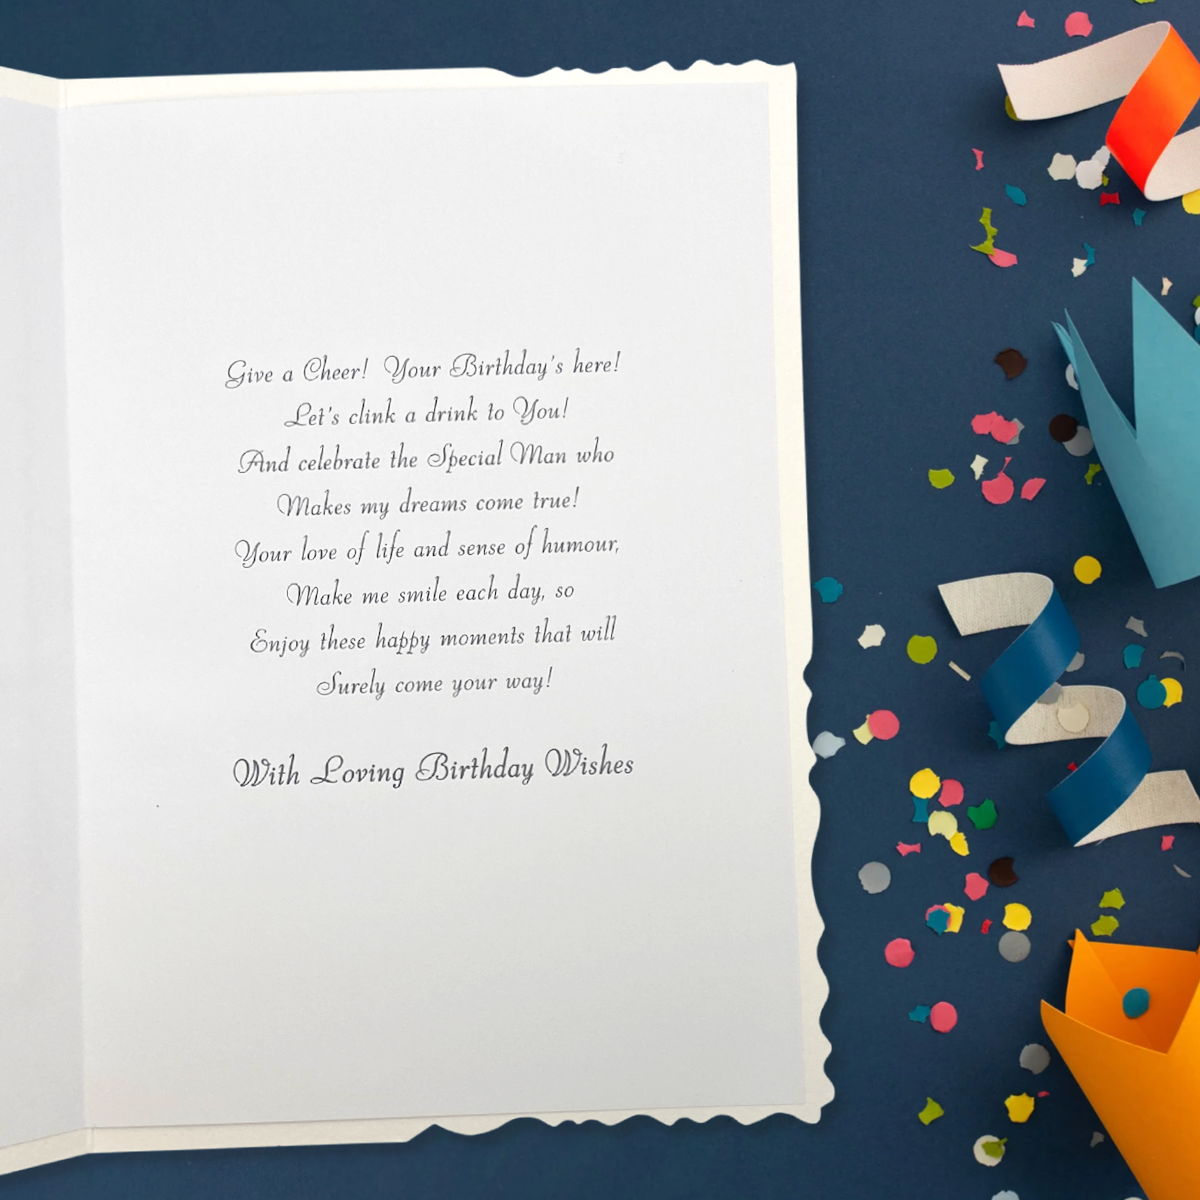 Give a Cheer! Your Birthday's here!
Let's clink a drink to You!
And celebrate the Special Man who
Makes my dreams come true!
Your love of life and sense of humour,
Make me smile each day, so
Enjoy these happy moments that will
Surely come your way!
With Loving Birthday Wishes